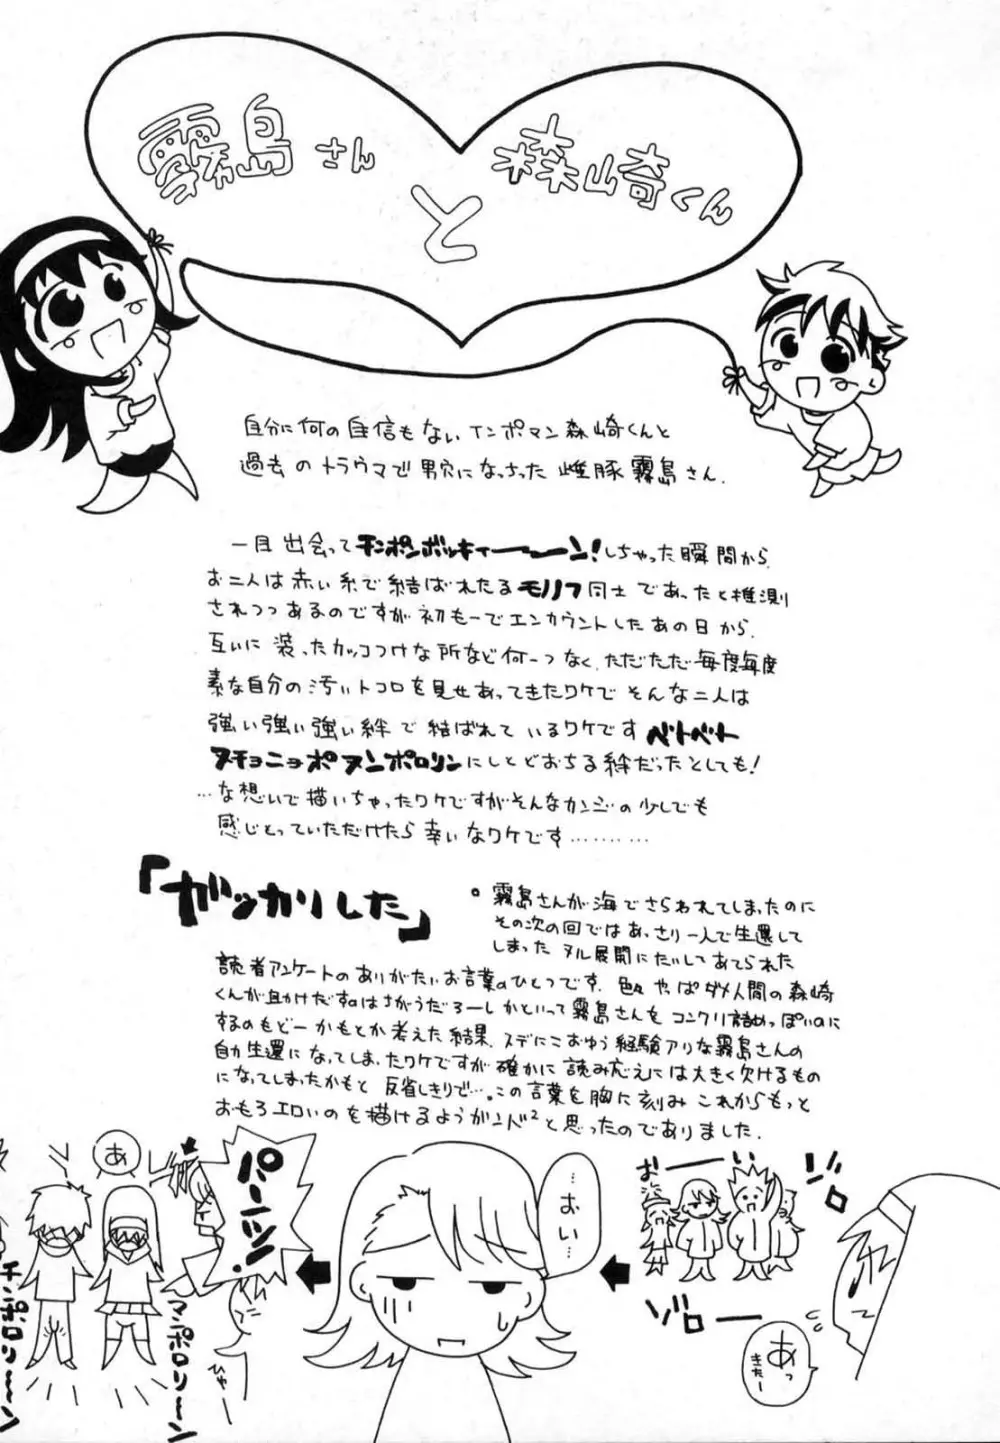 霧島さん
と
森崎くん
自分に何の自信もない インポマン 森崎くんと
過去のトラウマで男穴になっちった 雌豚 霧島さん.
一目出会って チンポンボッキィーーン! しちゃった瞬間から
お二人は赤い糸で結ばれたる モノノフ同士であったと推測
されつつあるのですが 初もーでエンカウントしたあの日から.
互いに装ったカッコつけな所など何一つなく、ただただ毎度毎度
素な自分の汚いトコロを見せあってきたワケで そんな二人は
強い強い強い絆で結ばれているワケです ベトベト
ヌチョニョポヌンポロリンにしとどおちる絆だったとしても!
…な想いで描いちゃったワケですがそんなカンジの少しでも
感じとっていただけたら幸いなワケです………
「ガッカリした」
。霧島さんが海でさらわれてしまったのに
その次の回ではあっさり一人で生還して
しまったヌル展開にたいしてあてられた
読者アンケートのありがたいお言葉のひとつです. 色々やっぱダメ人間の森崎
くんが助けだすのはちがうだろーしかといって霧島さんをコンクリ詰めっぽいのに
するのもどーかもとか考えた結果、スデにこおゆう経験アリな霧島さんの
自力生還になってしまったワケですが確かに読み応えには大きく欠けるもの
になってしまったかもと 反省しきりで…. この言葉を胸に刻みこれからもっと
おもろエロいのを描けるようガンバ²と思ったのでありました.
お———い
ゾロ
ゾロー
あっ
きたー
…おい…
パーンッ!
あ
チンポロリーン
マンポロリーン
ひゃー